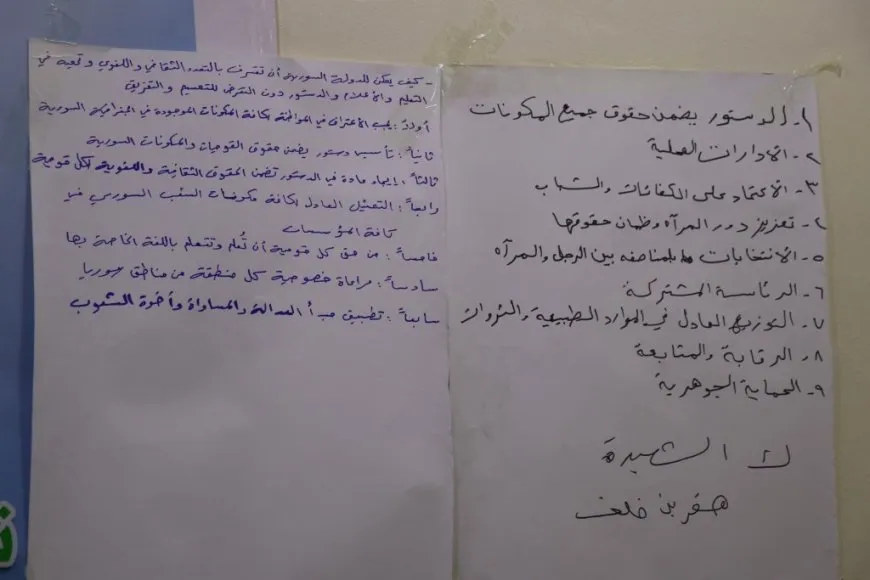 ١- الدستور يضمن حقوق جميع المكونات
٢- الادارات المحلية
٣- الاعتماد على الكفائات والشباب
٤- تعزيز دور المرأه وظمان حقوقها
٥- الانتخابات بالمناصفه بين الرجل والمرأه
٦- الرئاسة المشتركة
٧- التوزيع العادل في الموارد الطبيعية والثروات
٨- الرقابة والمتابعة
٩- الحماية الجوهرية
ك الشهيدة
هفرين خلف
- كيف يمكن للدولة السورية أن تعترف بالتعدد الثقافي واللغوي وتحميه في
التعليم والأعلام والدستور دون التعرض للتقسيم والتفريق
أولاً: يجب الأعتراف في المواطنة لكافة المكونات الموجودة في الجغرافية السورية
ثانياً: تأسيس دستور يضمن حقوق القوميات والمكونات السورية
ثالثاً: إيجاد مادة في الدستور تضمن الحقوق الثقافية واللغوية لكل قومية
رابعاً: التمثيل العادل لكافة مكونات الشعب السوري في
كافة المؤسسات
خامساً: من حق كل قومية أن تُعلم وتتعلم باللغة الخاصة بها
سادساً: مراعاة خصوصية كل منطقة من مناطق سوريا
سابعاً: تطبيق مبدأ العدالة والمساواة وأخوة الشعوب